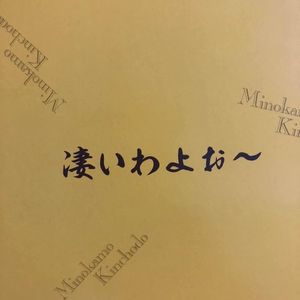 Minokamo
Kinchodo
Minokamo
Kin
凄いわよお〜
Minokamo
Kinchodo